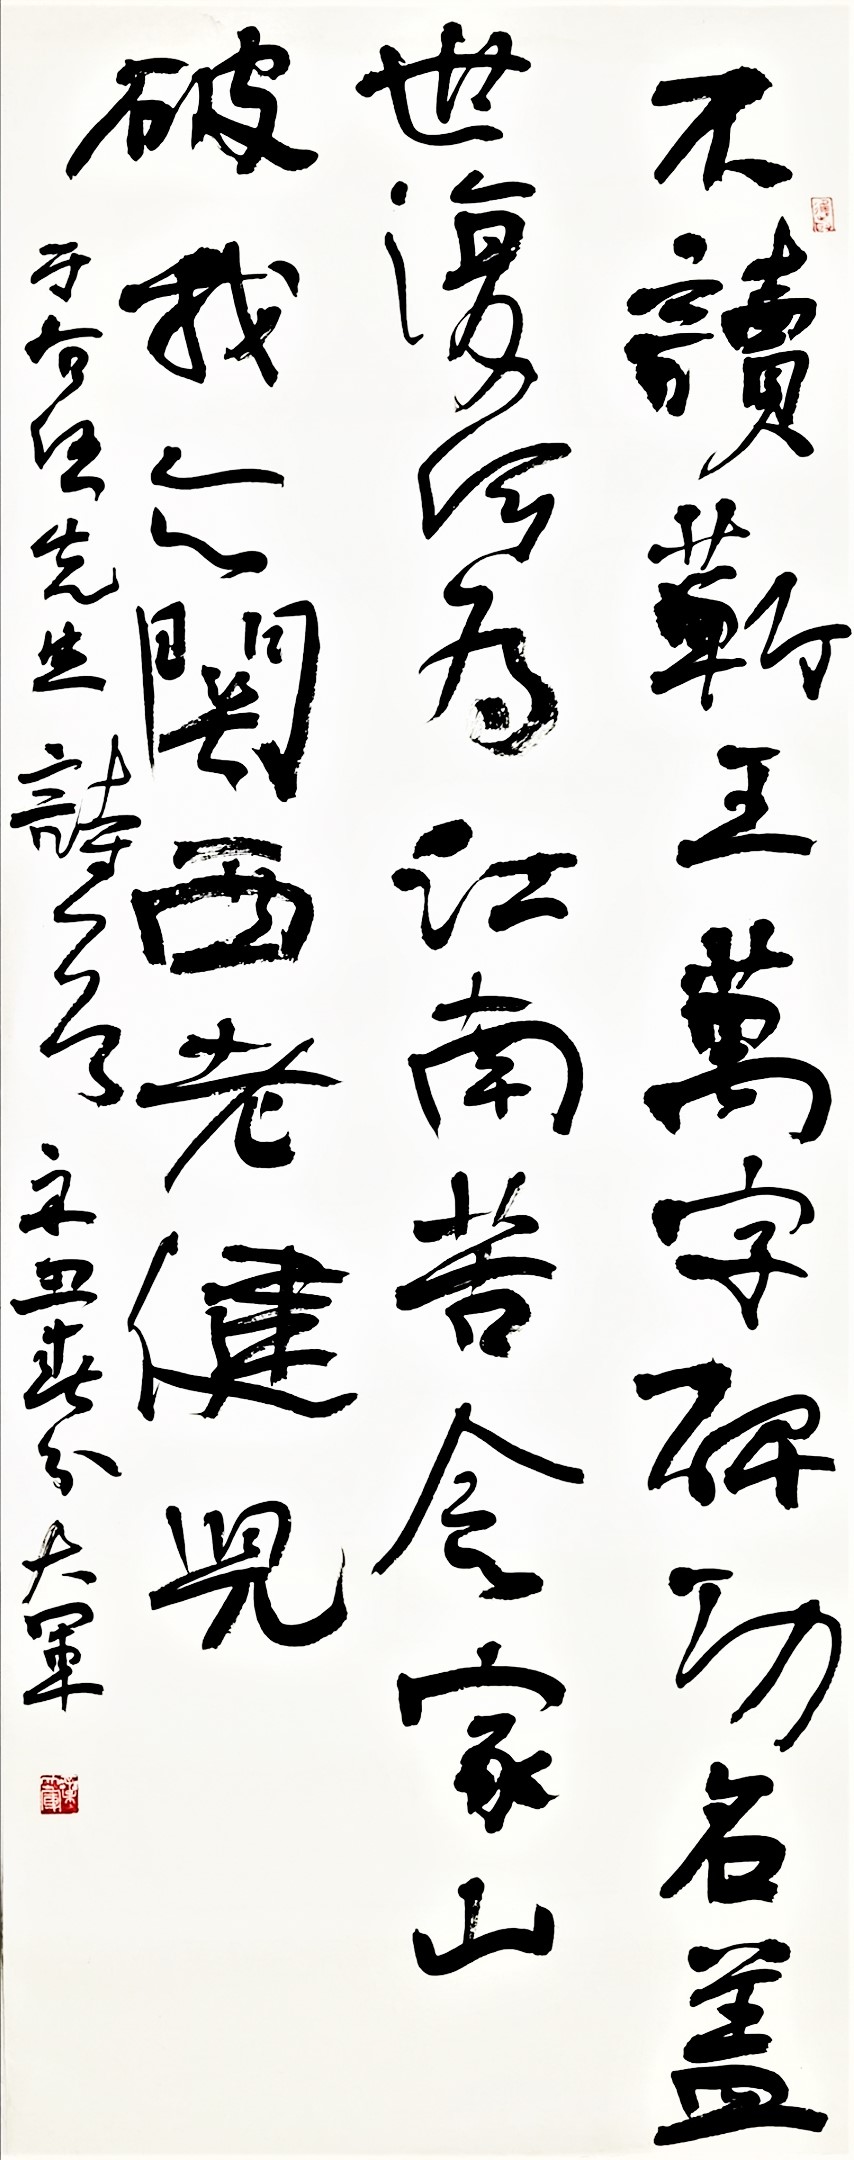 不讀蘄王萬字碑功名蓋
世復何為江南苦念家山
破我亦關西老健兒
于右任先生詩一首 辛丑春分 大軍